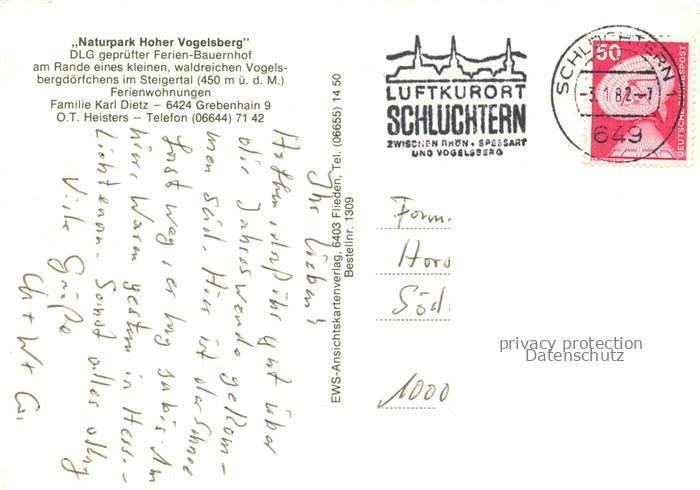 „Naturpark Hoher Vogelsberg"
DLG geprüfter Ferien-Bauernhof
am Rande eines kleinen, waldreichen Vogels-
bergdörfchens im Steigertal (450 m ü. d. M.)
Ferienwohnungen
Familie Karl Dietz – 6424 Grebenhain 9
O.T. Heisters – Telefon (06644) 71 42
Ihr Lieben!
Hoffen, daß ihr gut über
die Jahreswende gekom-
men seid. Hier ist der Schnee
fast weg, er lag ja bis 1m
hier. Waren gestern in Hess.-
Lichtenau. Sonst alles okay
Viele Grüße
Ch + W +
EWS-Ansichtskartenverlag, 6403 Flieden, Tel. (06655) 14 50
Bestellnr. 1309
LUFTKURORT
SCHLÜCHTERN
ZWISCHEN RHÖN + SPESSART
UND VOGELSBERG
SCHLÜCHTERN 1
-3. 1.82-7
649
50
DEUTSCHE BUNDESPOST
Fam.
1000
privacy protection
Datenschutz